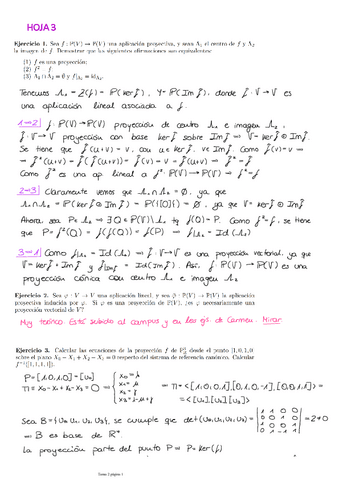 HOJA 3
Ejercicio 1. Sea f : P(V) → P(V) una aplicación projectiva, y sean Λ₁ el centro de f y Λ₂
la imagen de f. Demostrar que las siguientes afirmaciones son equivalentes:
(1) f es una proyección;
(2) f² = f;
(3) Λ₁ ∩ Λ₂ = ∅ y f|Λ₂ = id Λ₂.
Tenemos Λ₁ = Z(f) = P(Ker f̂), Y = P(Im f̂), donde f̂: V → V es
una aplicación lineal asociada a f.
1→2 f: P(V) → P(V) proyección de centro Λ₁ e imagen Λ₂,
f̂: V → V proyección con base Ker f̂ sobre Im f̂ ⟹ V = Ker f̂ ⊕ Im f̂.
Se tiene que f̂(u+v) = v, con u ∈ Ker f̂, v ∈ Im f̂. Como f̂(v) = v ⟹
⟹ f̂²(u+v) = f̂(f̂(u+v)) = f̂(v) = v = f̂(u+v) ⟹ f̂² = f̂
Como f̂² es una ap. lineal a f²: P(V) → P(V) ⟹ f² = f
2→3 Claramente vemos que Λ₁ ∩ Λ₂ = ∅, ya que
Λ₁ ∩ Λ₂ = P(Ker f̂ ∩ Im f̂) = P({0}) = ∅, ya que V = Ker f̂ ⊕ Im f̂
Ahora sea P ∈ Λ₂ ⟹ ∃ Q ∈ P(V)\Λ₁ tq f(Q) = P. Como f² = f, se tiene
que P = f²(Q) = f(f(Q)) = f(P) ⟹ f|Λ₂ = Id(Λ₂)
3→1 Como f|Λ₂ = Id(Λ₂) ⟹ f̂: V → V es una proyección vectorial, ya que
V = Ker f̂ + Im f̂ y f̂|Im f̂ = Id(Im f̂). Así, f: P(V) → P(V) es una
proyección cónica con centro Λ₁ e imagen Λ₂
Ejercicio 2. Sea φ : V → V una aplicación lineal, y sea φ : P(V) → P(V) la aplicación
proyectiva inducida por φ. Si φ es una proyección de P(V), ¿es φ necesariamente una
proyección vectorial de V?
Muy teórico. Está subido al campus y en los ejs. de Carmen. Mirar
Ejercicio 3. Calcular las ecuaciones de la proyección f de P³ desde el punto [1,0,1,0]
sobre el plano X₀ − X₁ + X₂ − X₃ = 0 respecto del sistema de referencia canónico. Calcular
P = [1,0,1,0] = [u₀]
Π = X₀ - X₁ + X₂ - X₃ = 0
Sea B = {u₀, u₁, u₂, u₃}, se cumple que det(u₀, u₁, u₂, u₃) =
⟹ B es base de R⁴.
la proyección parte del punto P ⟹ P = Ker(f̂)